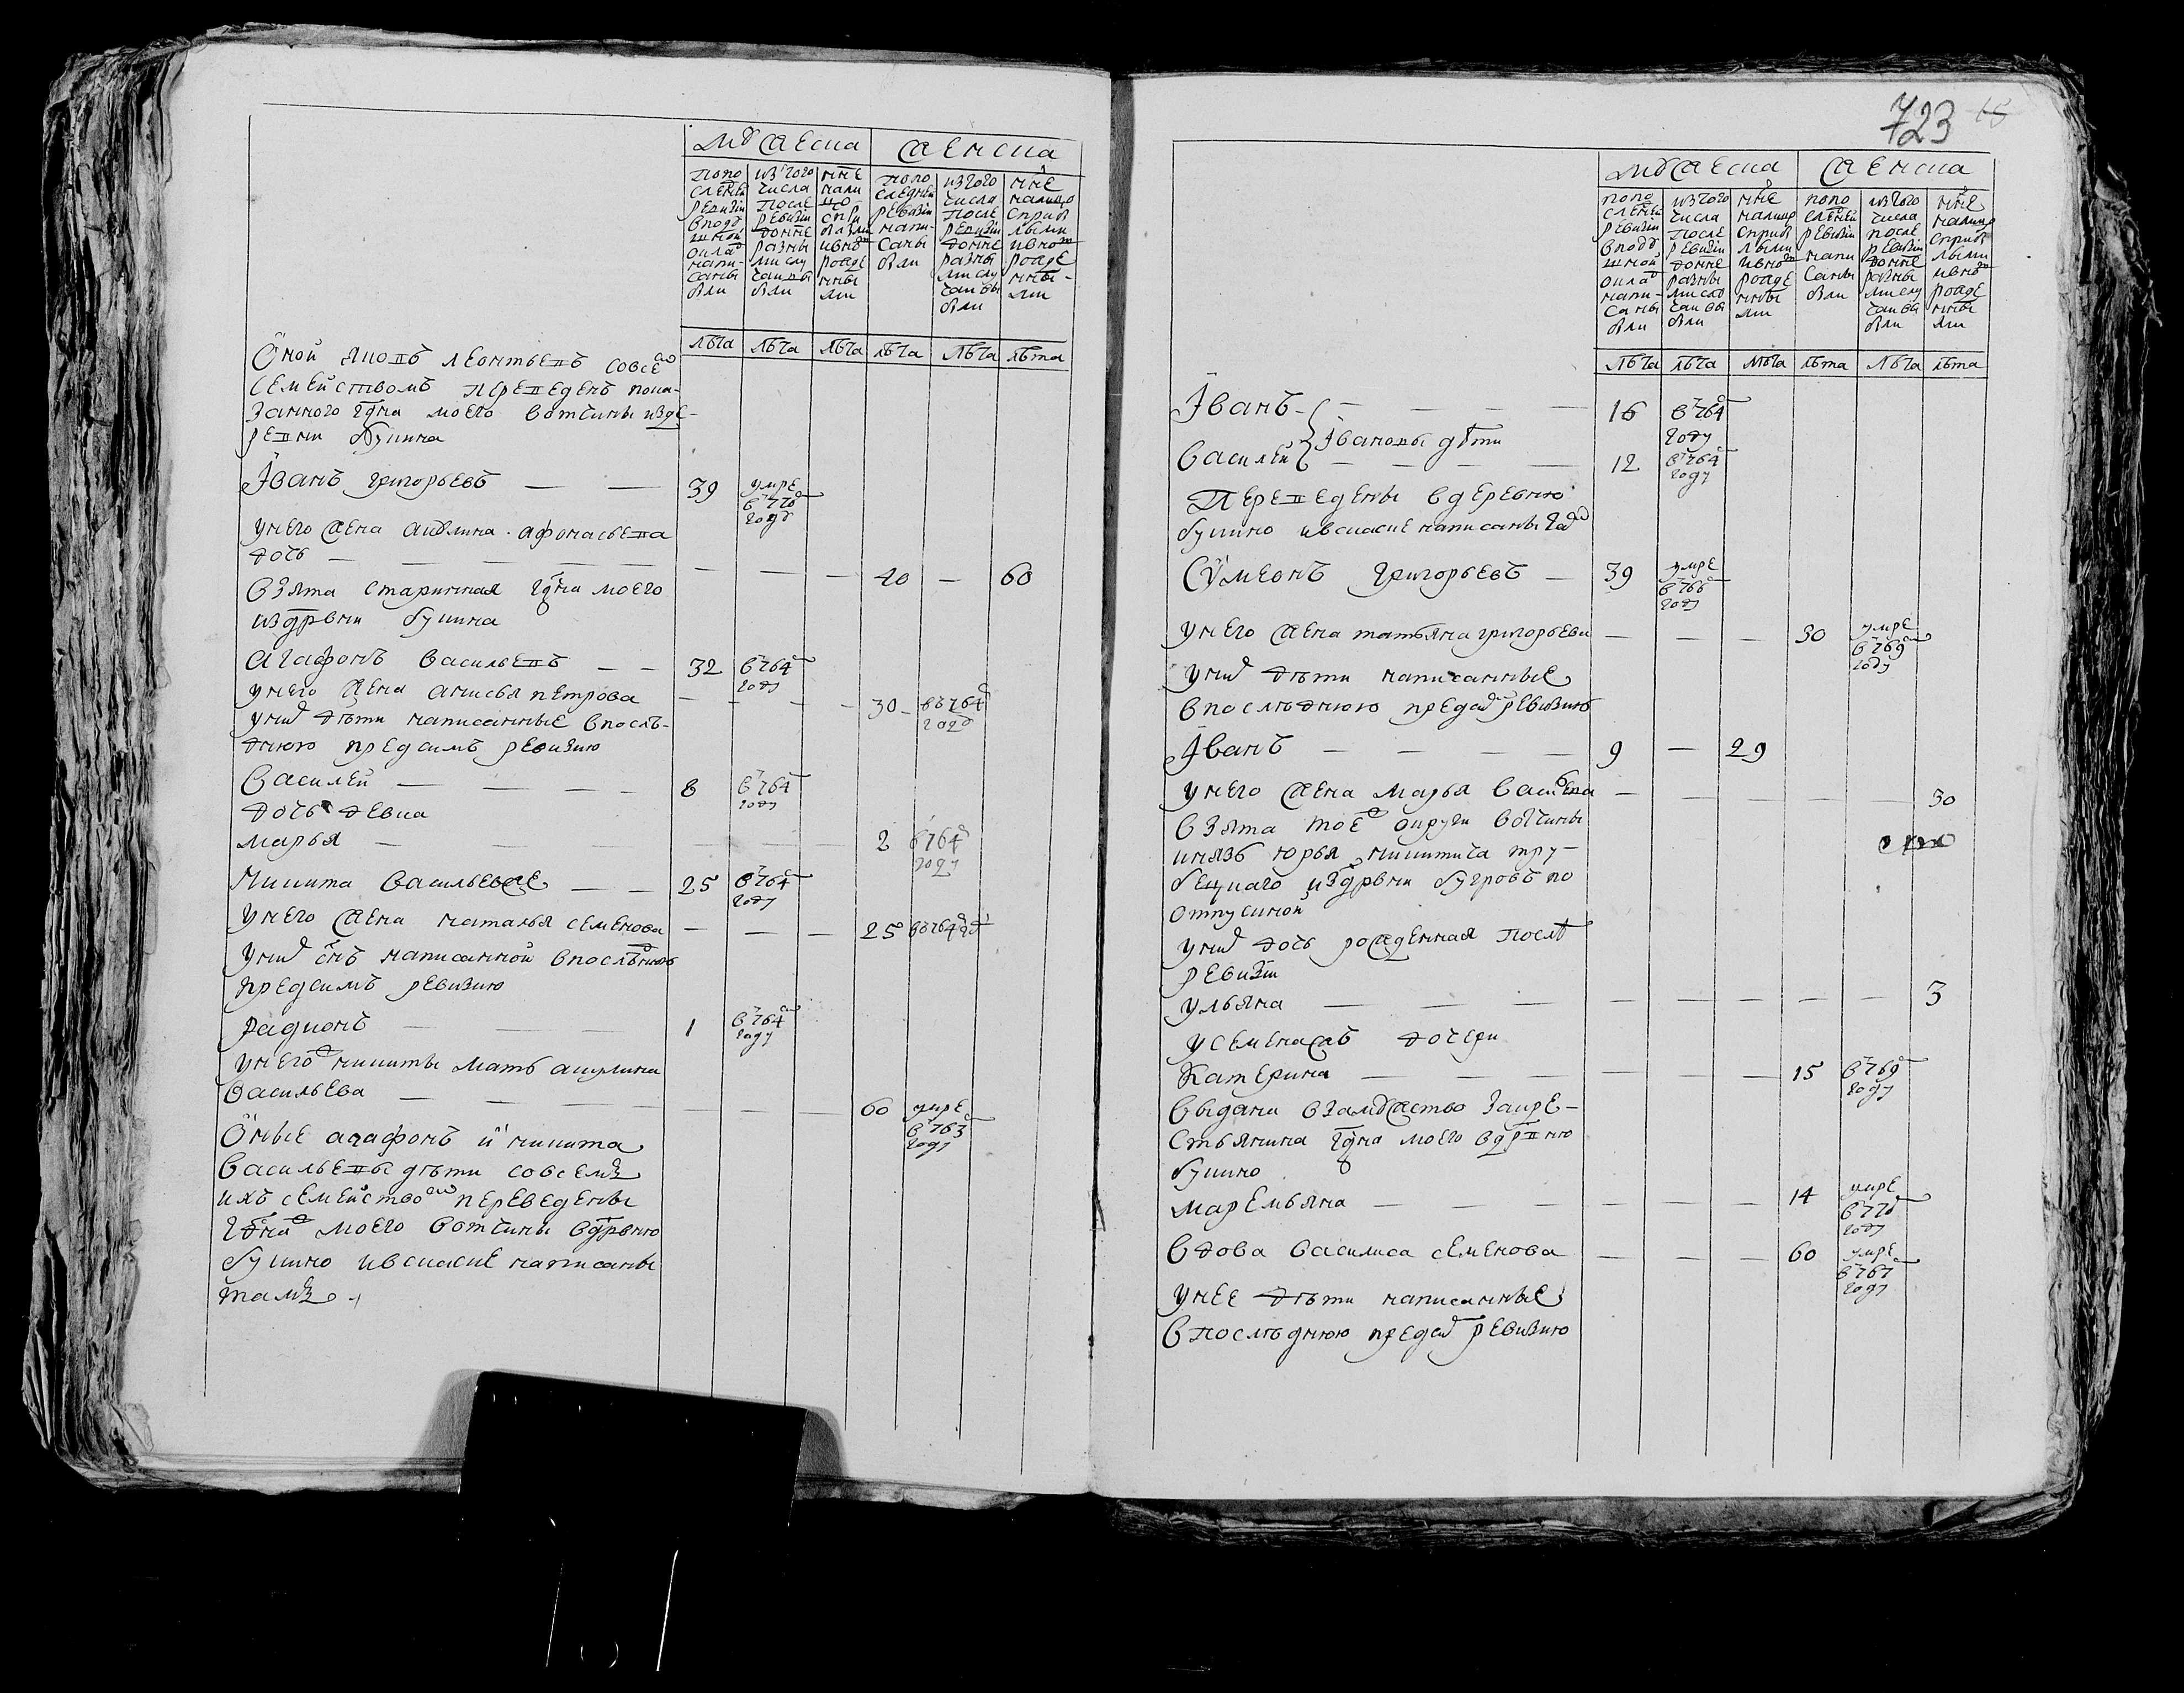 мужеска
женска
попо
следней
ревизіи
вподу
шной
оклад
напи-
саны
были
изтого
числа
после
ревизіи
донне
разны
ми слу
чаи вы
были
нне
попо
следней
ревизіи
напи-
саны
были
изтого
числа
после
ревизіи
донне
разны
ми слу
чаи вы
были
нне
налицо
сприб
лыми
ивнов
рожде
нны-
ми
лѣта лѣта лѣта лѣта лѣта лѣта
Оной яковъ леонтьевъ совсем
семействомъ переведенъ пока-
занного гдна моего вотчины изде-
ревни букина
Іванъ григорьевъ — — 39 умре в 770 году
унего жена акулина афонасьева
дочь — — — — — — — 40 — 60
взята старинная гдна моего
издрвни букина
агафонъ васильевъ — — 32 в 764 году
унего жена анисья петрова — — — — 30 в 764 году
уних дѣти написанные впослѣ-
днюю предсимъ ревизию
василей — — — — 8 в 764 году
дочь девка
марья — — — — 2 в 764 году
Никита васильевже — — 25 в 764 году
унего жена наталья семенова — — — 25 в 764 год
уних снъ написанной впослѣднюю
предсимъ ревизию
радионъ — — — 1 в 764 году
унегож никиты мать акулина
васильева — — — — — — 60 умре в 763 году
Оные агафонъ и никита
васильевы дѣти совсемъ
ихъ семейством переведены
гдна моего вотчины вдрвню
букино ивсказке написаны
тамъ
723 15
мужеска
женска
попо
следней
ревизіи
вподу
шной
оклад
напи-
саны
были
изтого
числа
после
ревизіи
донне
разны
ми слу
чаи вы
были
нне
налицо
сприб
лыми
ивнов
рожде
нны
ми
попо
следней
ревизіи
напи
саны
были
изтого
числа
после
ревизіи
донне
разны
ми слу
чаи вы
были
нне
налицо
сприб
лыми
ивнов
рожде
нны
ми
лѣта лѣта лѣта лѣта лѣта лѣта
Іванъ — — — — 16 в 764 году
Івановы дѣти
василей — — — — 12 в 764 году
Переведены вдеревню
букино ивсказке написаны
Сүмеонъ григорьевъ — 39 умре в 766 году
унего жена татьяна григорьева — — — 30 умре в 769 году
уних дѣти написанные
впослѣднюю предсим ревизию
Іванъ — — — — 9 — 29
унего жена марья васильева — — — — — 30
взята тоеж округи вотчины
князь юрья никитича тру-
бецкаго издрвни бугровъ по
отпускной
уних дочь рожденная послѣ
ревизіи
ульяна — — — — — — — — 3
усеменажъ дочери
Катерина — — — — — — 15 в 769 году
выдана взамужство закре-
стьянина гдна моего вдрвню
букино
маремьяна — — — — — — 14 умре в 770 году
вдова василиса семенова — — — 60 умре в 767 году
унее дѣти написанные
впослѣднюю предсим ревизию